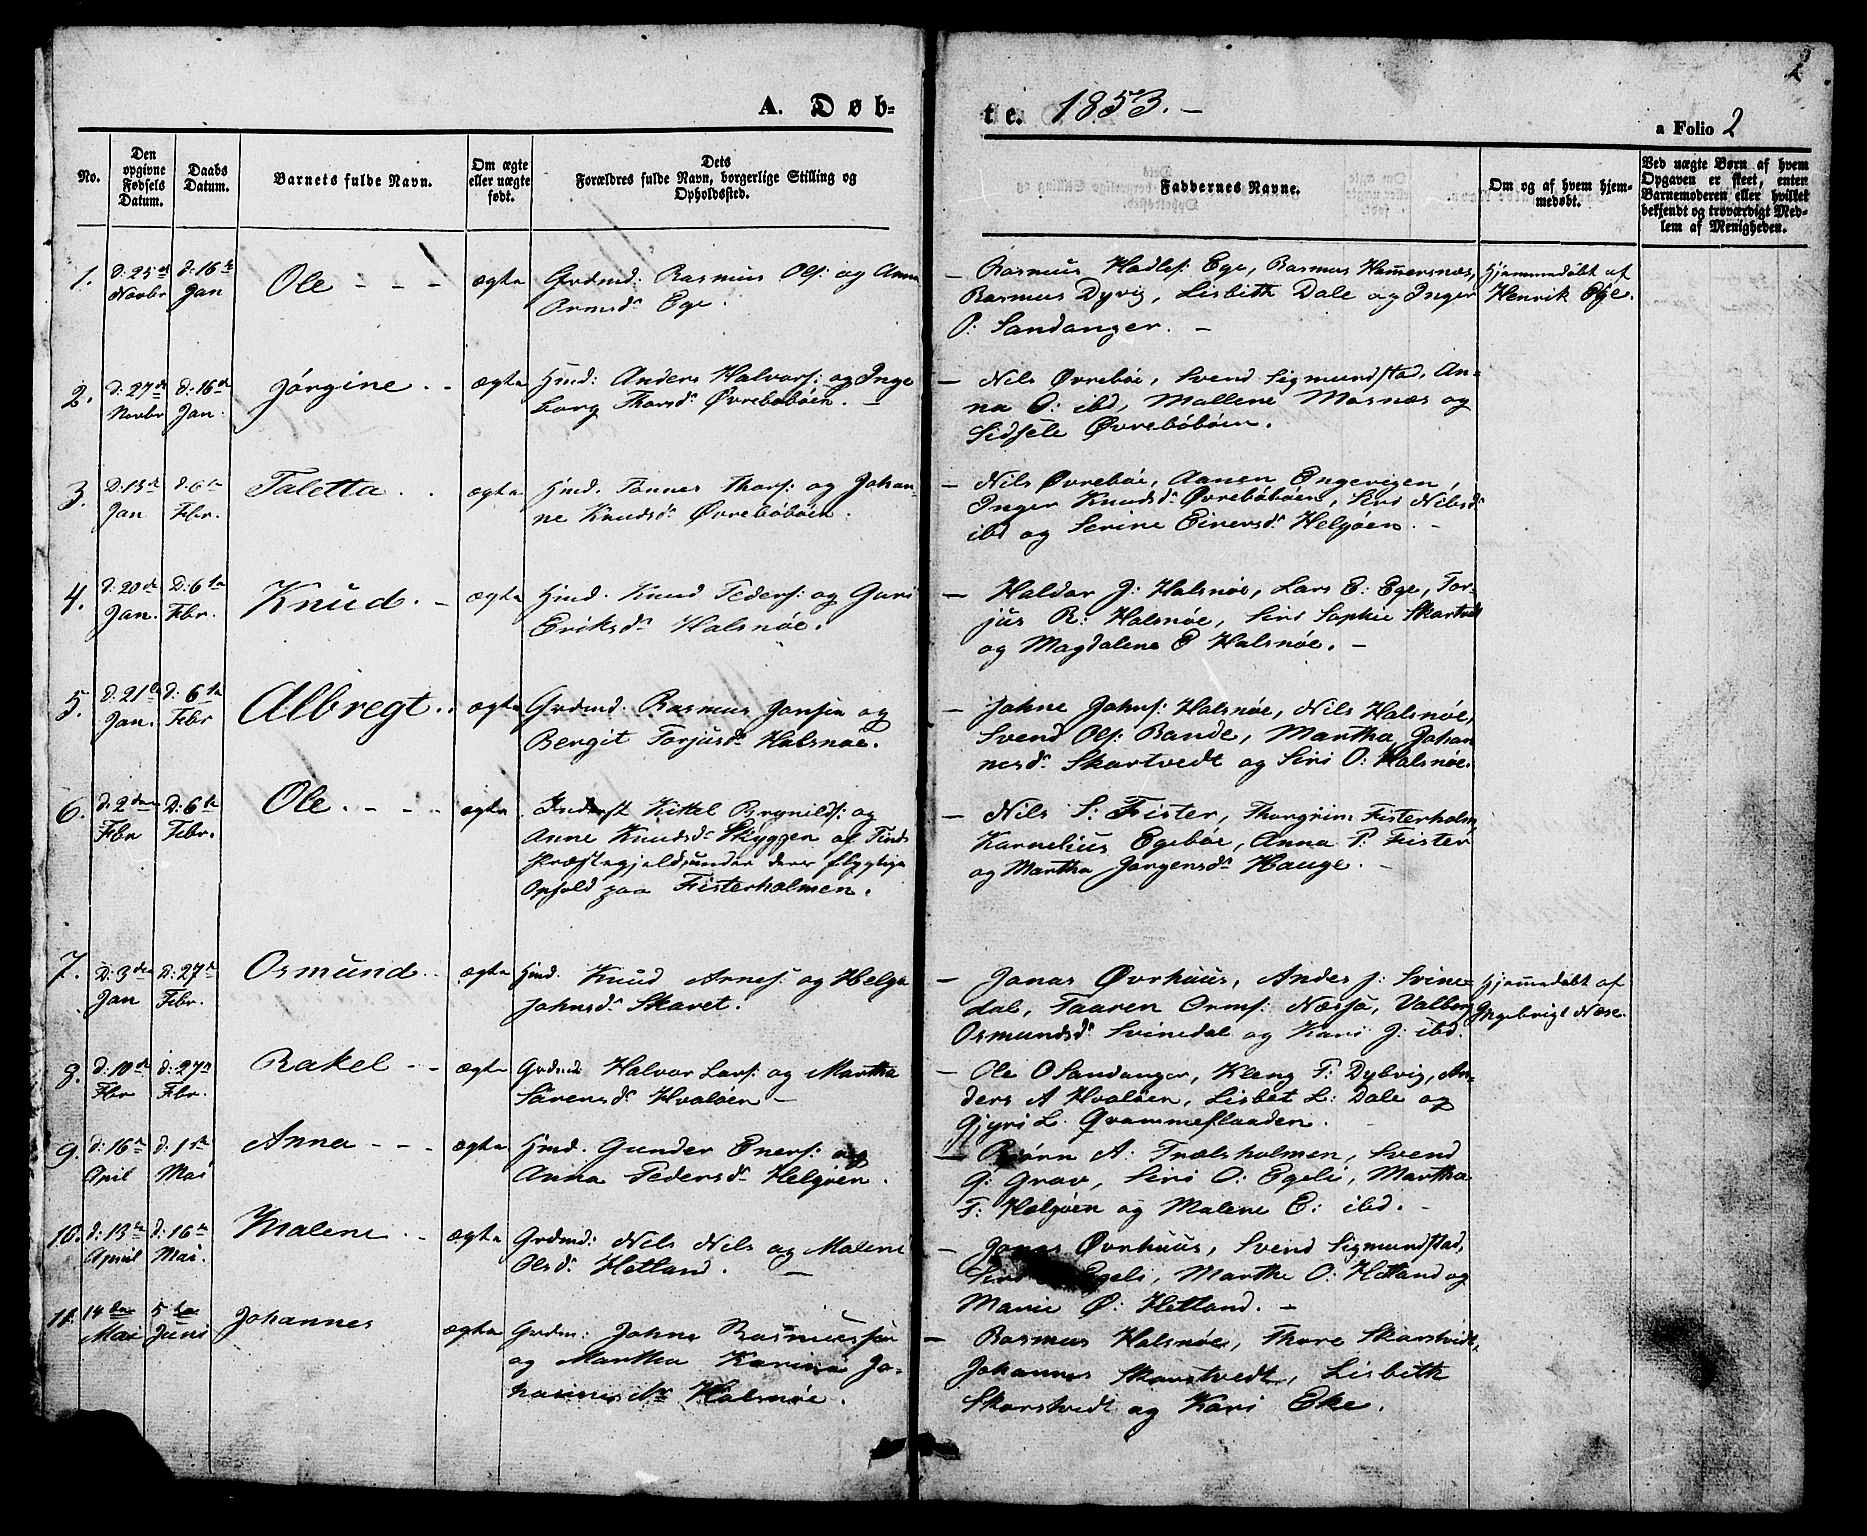 2
A. Døb-
te. 1853. –
a Folio 2
No.
Den opgivne Fødsels Datum.
Daabs Datum.
Barnets fulde Navn.
Om ægte eller uægte født.
Dets Forældres fulde Navn, borgerlige Stilling og Opholdssted.
Faddernes Navne.
Om og af hvem hjemmedøbt.
Ved uægte Børn af hvem Opgaven er skeet, enten Barnemoderen eller hvilket bekjendt og troværdigt Medlem af Menigheden.
1. d: 25de Novbr d: 16de Jan Ole - - - ægte Grdmd: Rasmus Ols: og Anna
Ormsdr Ege.
– Rasmus Hadles: Ege, Rasmus Hamersnæs,
Rasmus Dyvig, Lisbeth Dale og Inger
P: Sandanger. –
Hjemmedøbt af
Henrik Ege.
2. d: 27de Novbr d: 16de Jan. Jørgine - - ægte Hmd: Anders Halvors: og Inge
borg Thorsdr Øvrebøbøen. –
– Nils Øvrebøe, Svend Sigmundstad, An-
na O: ibd, Mallene Mosnæs og
Sidsele Øvrebøbøen.
3. D: 13de Jan d: 6te Febr. Taletta - - ægte Hmd. Tønnes Thors: og Johan-
ne Knudsdr Øvrebøbøen.
– Nils Øvrebøe, Aanen Engevigen,
Inger Knudsdr Øvrebøbøen, Siri Nilsdr
ibd og Serine Einersdr Helgøen. –
4. d: 20de Jan. D: 6te Febr. Knud. – ægte Hmd. Knud Peders: og Guri
Eriksdr Halsnøe.
– Haldor J: Halsnøe, Lars E: Ege, Tor-
jus R: Halsnøe, Siri Sophie Skartvedt
og Magdalene E Halsnøe. –
5. d: 21de Jan. d: 6te Febr Albregt. . ægte Grdmd. Rasmus Jansen og
Bergit Torjusdr Halsnøe.
– Johne Johns: Halsnøe, Nils Halsnøe,
Svend Ols: Bande, Martha Johan
nesdr Skartvedt og Siri O: Halsnøe.
6. d: 2den Fbr D: 6te Febr. Ole. - - - ægte Inderst Kittel Brynilds: og
Anne Knudsdr Skyggen af Tinds
Præstegjeld, under deres
Ophold paa Fisterholmen.
– Nils S: Fister, Thorgrim Fisterholm,
Karnelius Egebøe, Anna P: Fister
og Martha Jørgensdr Hauge. –
7. D: 3den Jan D: 27de Febr. Osmund - - ægte Hmd. Knud Arnes: og Helga
Johnsdr Skaret.
– Jonas Øvrhuus, Anders J: Svine-
dal, Taaren Orms: Næssø, Valborg
Osmundsdr Svinedal og Kari J: ibd.
Hjemmedøbt af
Ingebrigt Næse.
8. d: 10de Fbr d: 27de Febr. Rakel - - ægte Grdmd Halvor Lars: og Martha
Sørensdr Hvaløen –
– Ole O Sandanger, Kleng P: Dybvig, An-
ders A Hvaløen, Lisbet L: Dale og
Gjyri L. Qvammeflaaden.
9. d: 16de April d: 1ste Mai Anna - - ægte Hmd. Gunder Eners: og
Anna Pedersdr Helgøen.
– Bjørn A: Trælsholmen, Svend
G: Grav, Siri O: Egeli, Martha
T: Helgøen og Malene E: ibd. -
10. d: 13de April d: 16de Mai. Malene - - ægte Grdmd: Nils Nils og Malene
Olsdr Hetland. –
– Jonas Øvrhuus, Svend Sigmundstad,
Siri Egeli, Marthe O: Hetland og
Marie Ø: Hetland. –
11. 14den Mai 5te Juni Johannes ægte Grdm: Johne Rasmussen
og Martha Karine Jo-
hannesdr Halsnøe.
– Rasmus Halsnøe, Thore Skarstvedt,
Johannes Skarstvedt, Lisbeth
Skarstvedt og Kari Eke.